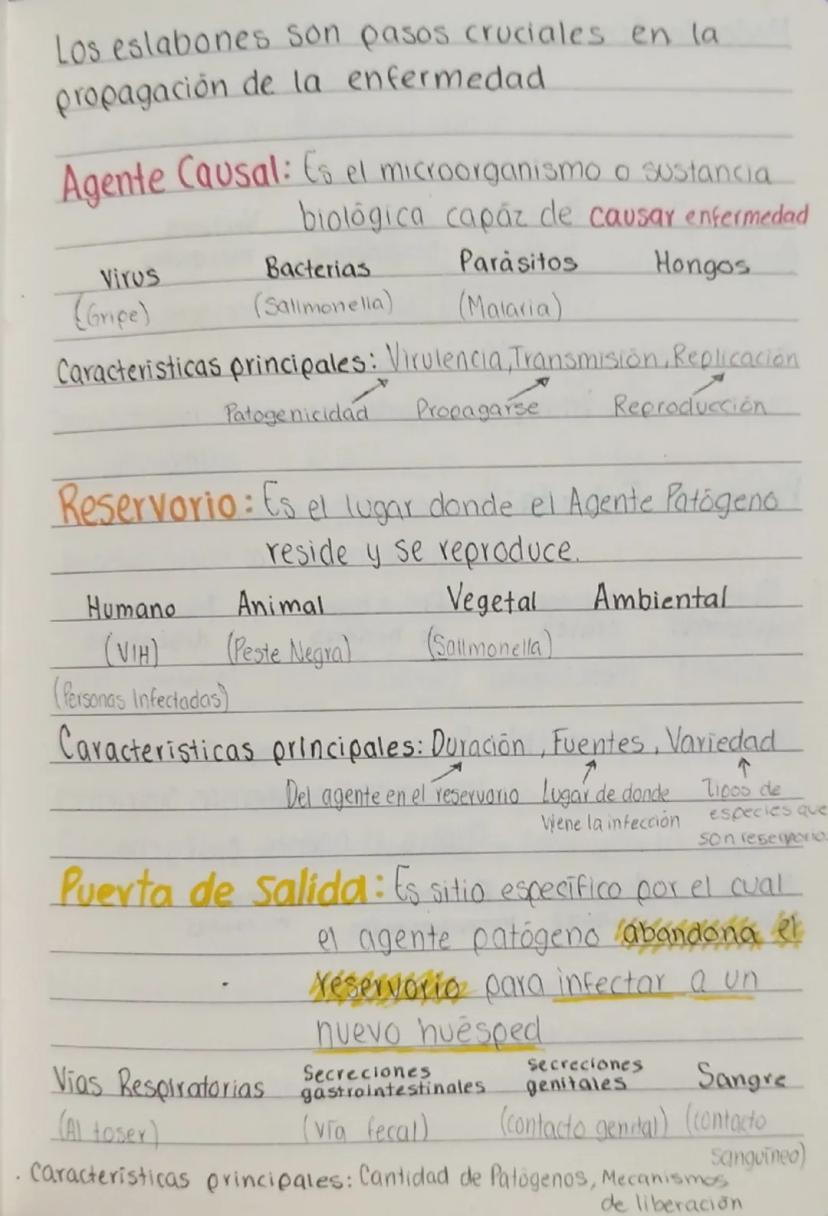 Los eslabones son pasos cruciales en la
propagación de la enfermedad
Agente Causal: Es el microorganismo o sustancia
biológica capáz de causar enfermedad
Virus Bacterias Paràsitos Hongos
(Gripe) (Sallmonella) (Malaria)
Caracteristicas principales: Virulencia, Transmisión, Replicación
Patogenicidad Propagarse Reproducción
Reservorio: Es el lugar donde el Agente Patógeno
reside y se reproduce.
Humano Animal Vegetal Ambiental
(VIH) (Peste Negra) (Sallmonella)
(Personas Infectadas)
Caracteristicas principales: Duración, Fuentes, Variedad
Del agente en el reservorio Lugar de donde Tipos de
viene la infección especies que
son reservorio
Puerta de Salida: Es sitio específico por el cual
el agente patógeno abandona el
reservorio para infectar a un
nuevo huésped
Vías Respiratorias Secreciones gastrointestinales secreciones genitales Sangre
(Al toser) (vía fecal) (contacto genital) (contacto
sanguíneo)
. Características principales: Cantidad de Patógenos, Mecanismos
de liberación